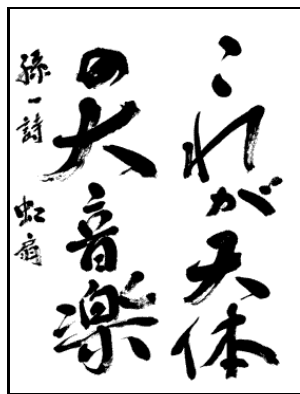 これが天体
の大音楽
孫一詩 虹扇